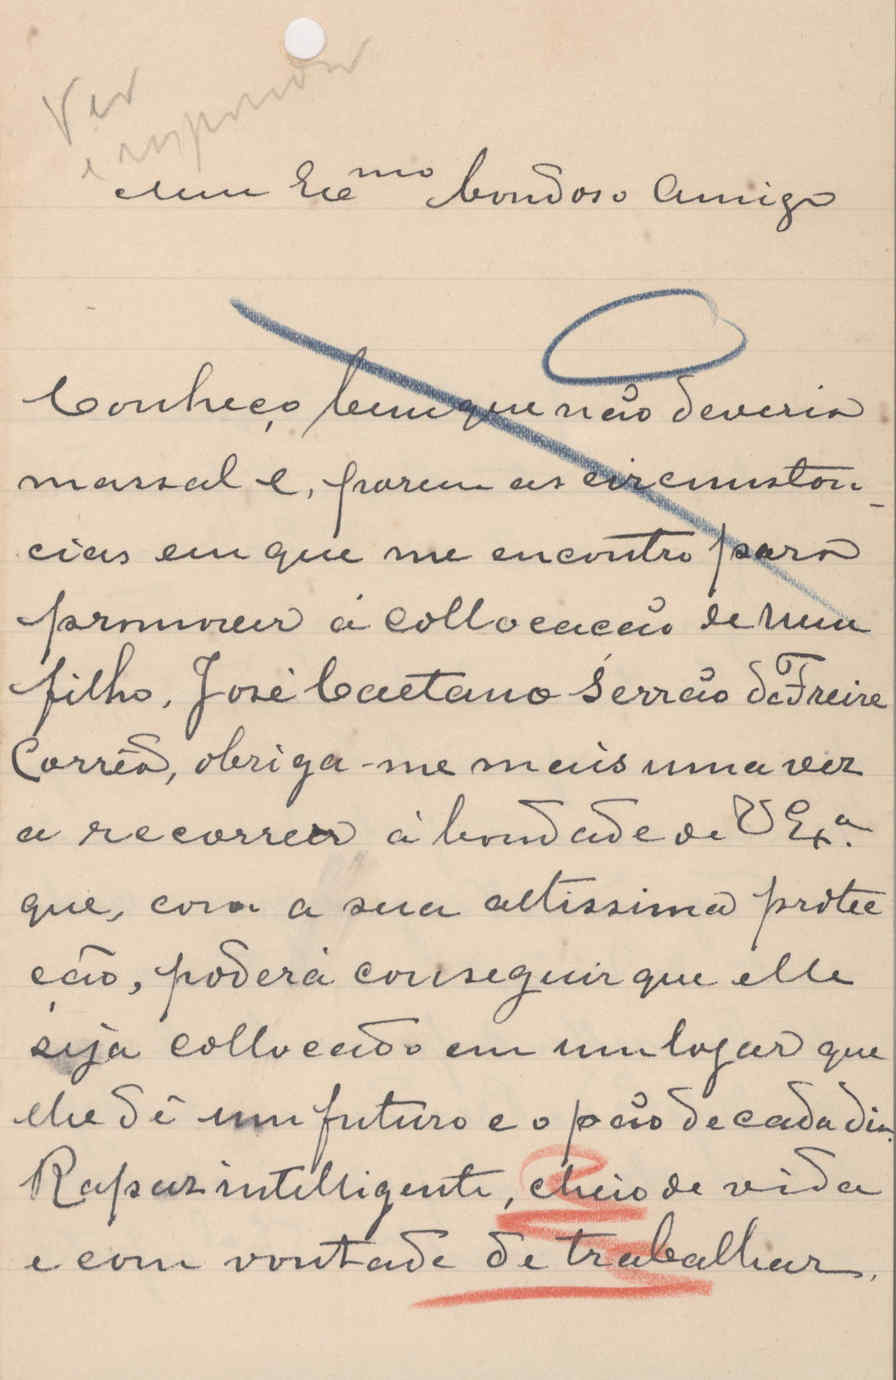 Ver
e responder
Meu Exᵐᵒ bondoso Amigo
Conheço bem que não deveria
massal-e, porem as circunstan-
cias em que me encontro para
promover á collocação de meu
filho, José Caetano Serrão da Freire
Corrêa, obriga-me mais uma vez
a recorrer á bondade de V Exª.
que, com a sua altissima protec
ção, poderá conseguir que elle
seja collocado em um logar que
lhe dê um futuro e o pão de cada dia.
Rapaz intelligente, cheio de vida
e com vontade de trabalhar,